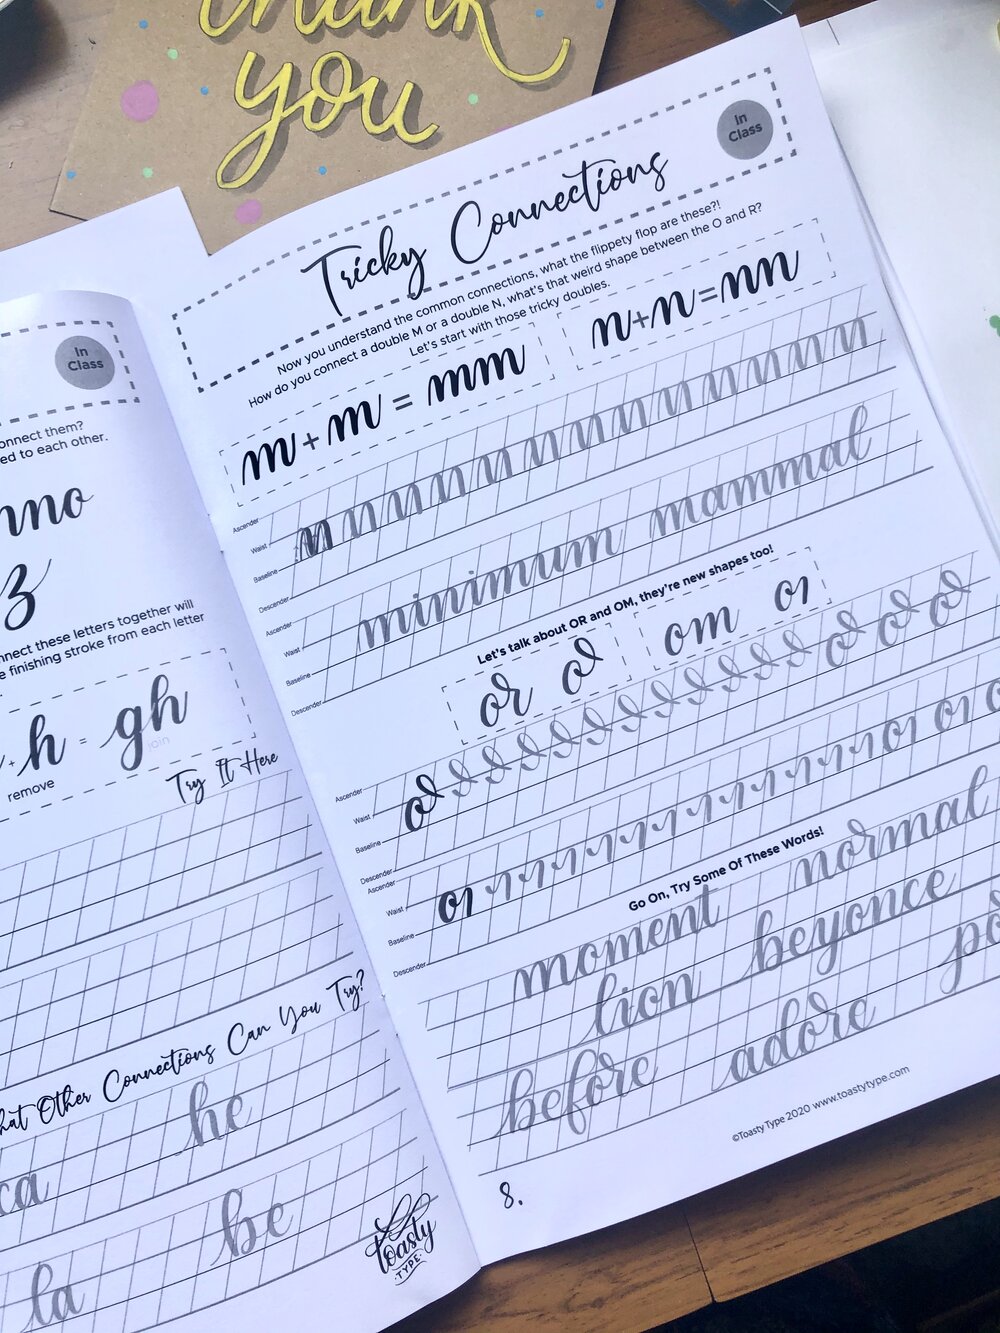 thank
you
In
Class
connect them?
ed to each other.
nno
z
nnect these letters together will
e finishing stroke from each letter
+ h = gh
remove
join
Try It Here
hat Other Connections Can You Try?
ca he
la be
toasty
TYPE
In
Class
Tricky Connections
Now you understand the common connections, what the flippety flop are these?!
How do you connect a double M or a double N, what's that weird shape between the O and R?
Let's start with those tricky doubles.
m + m = mm
n+n=nn
Ascender
Waist
Baseline
Descender
Ascender
Waist
Baseline
Descender
minimum mammal
Let's talk about OR and OM, they're new shapes too!
or
om
Ascender
Waist
Baseline
Descender
Ascender
Waist
Baseline
Descender
Go On, Try Some Of These Words!
moment normal
lion beyonce
before adore po
©Toasty Type 2020 www.toastytype.com
8.